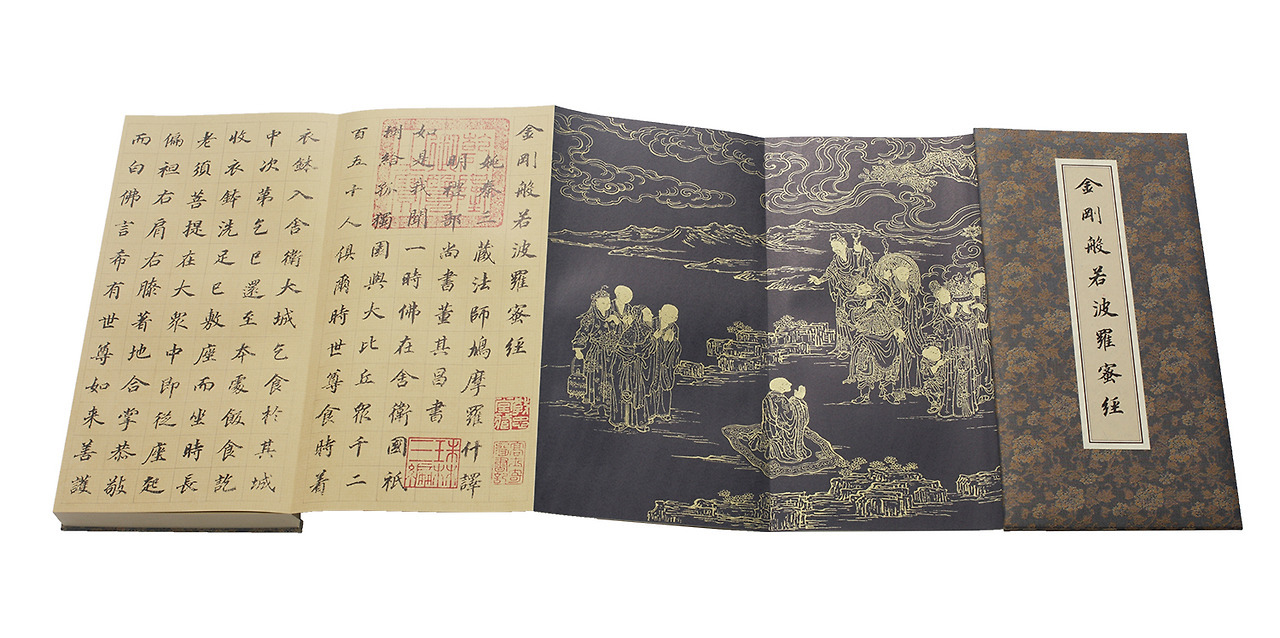 金剛般若波羅蜜經
金剛般若波羅蜜經
姚秦三藏法師鳩摩羅什譯
明禮部尚書董其昌書
如是我聞一時佛在舍衛國祇
樹給孤獨園與大比丘眾千二
百五十人俱爾時世尊食時着
衣鉢入舍衛大城乞食於其城
中次第乞已還至本處飯食訖
收衣鉢洗足已敷座而坐時長
老須菩提在大眾中即從座起
偏袒右肩右膝著地合掌恭敬
而白佛言希有世尊如来善護
珠林
三編